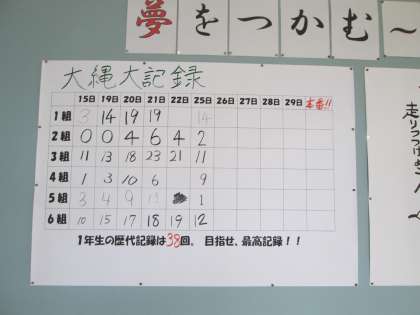 夢をつかむ～
大縄大記録
15日 19日 20日 21日 22日 25日 26日 27日 28日 29日 本番!!
1組 3 14 19 19 14
2組 0 0 4 6 4 2
3組 11 13 18 23 21 11
4組 1 3 10 6 9
5組 3 4 9 1
6組 10 15 17 18 19 12
1年生の歴代記録は38回。 目指せ、最高記録！！
走りつづけ